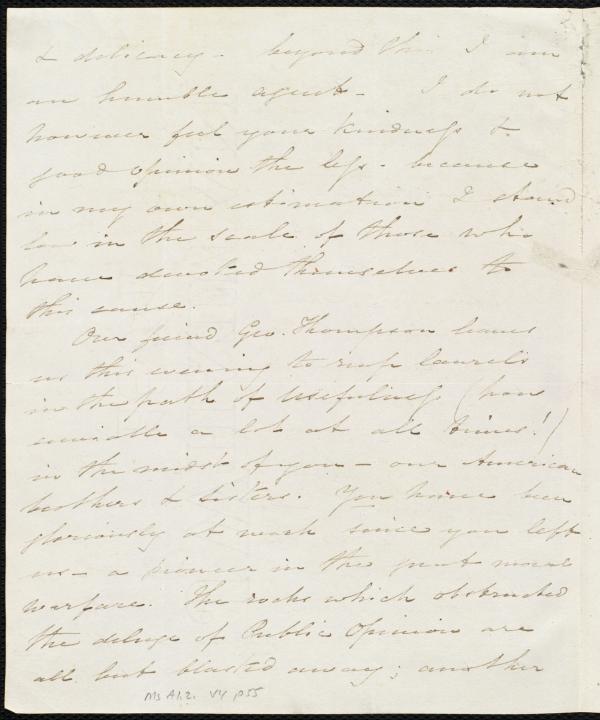 & delicacy - beyond this I am
an humble agent - I do not
however feel your kindness &
good opinion the less - because
in my own estimation I stand
low in the scale of those who
have devoted themselves to
this cause.
Our friend Geo. Thompson leaves
us this evening to reap laurels
in the path of usefulness (how
enviable a lot at all times!)
in the midst of you - our American
brothers & Sisters. You have been
gloriously at work since you left
us - a pioneer in the great moral
warfare. The rocks which obstructed
the deluge of Public Opinion are
all but blasted away; another
Ms A1.2. V4 p55